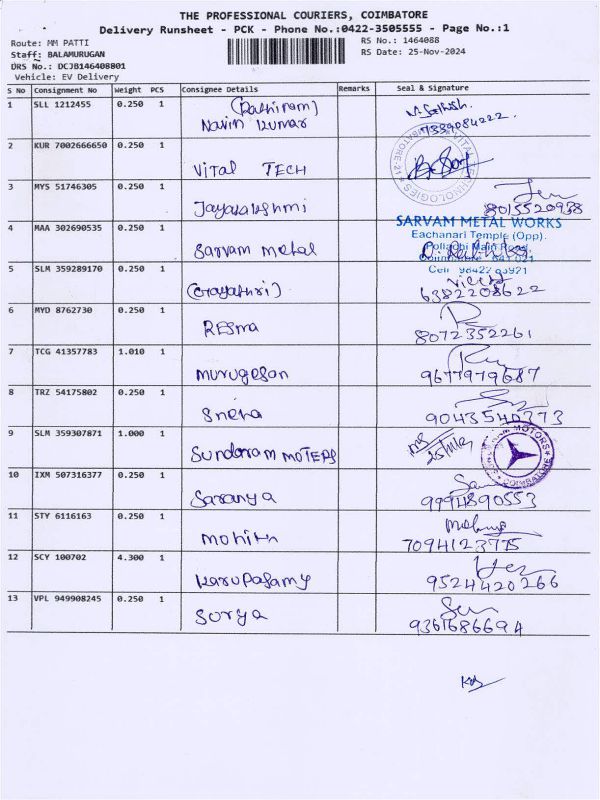 THE PROFESSIONAL COURIERS, COIMBATORE
Delivery Runsheet - PCK - Phone No.:0422-3505555 - Page No.:1
Route: MM PATTI
RS No.: 1464088
Staff: BALAMURUGAN
RS Date: 25-Nov-2024
DRS No.: DCJB146408801
Vehicle: EV Delivery
S No Consignment No Weight PCS Consignee Details Remarks Seal & Signature
1 SLL 1212455 0.250 1 (Rathinam)
Navin Kumar
7339084222
2 KUR 7002666650 0.250 1
Vital TECH
3 MYS 51746305 0.250 1
Jayalakshmi 8015520938
4 MAA 302690535 0.250 1
Sarvam metal
SARVAM METAL WORKS
Eachanari Temple (Opp).
Pollachi Main Road,
Coimbatore - 641 021
5 SLM 359289170 0.250 1
(Gayathri) 6382208622
6 MYD 8762730 0.250 1
Resma 8072352261
7 TCG 41357783 1.010 1
murugesan 9677979687
8 TRZ 54175802 0.250 1
Sneha 9043540373
9 SLM 359307871 1.000 1
Sundaram moters
MOTORS
COIMBATORE
10 IXM 507316377 0.250 1
Saranya 9994890553
11 STY 6116163 0.250 1
mohith 7094123775
12 SCY 100702 4.300 1
Karupasamy 9524420266
13 VPL 949908245 0.250 1
Surya 9361686694